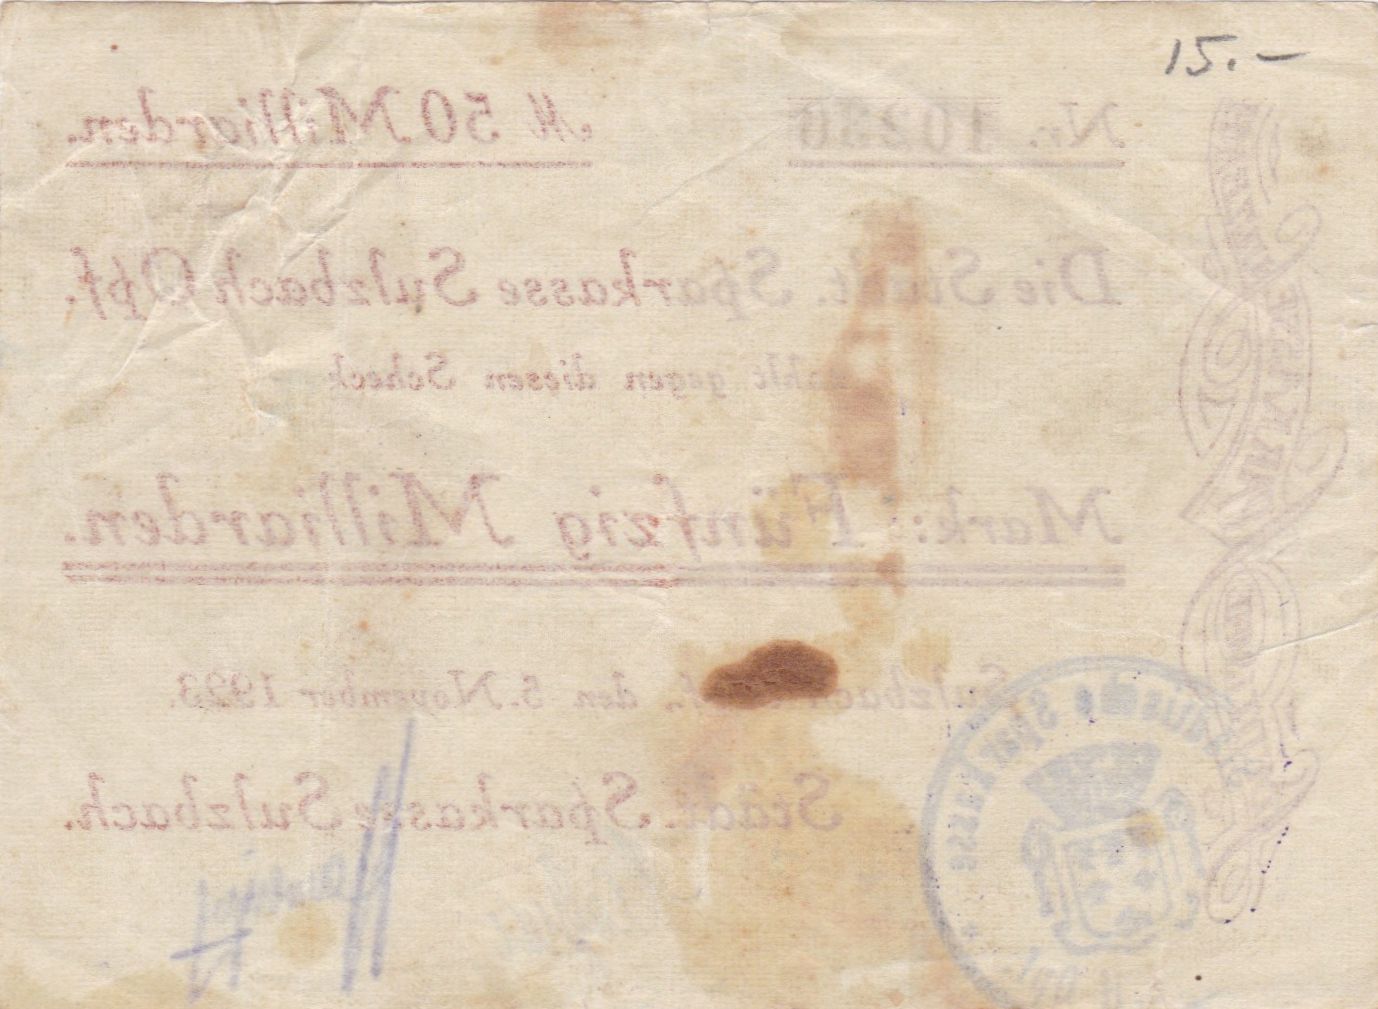 15.-
Nr. 10230
M 50 Milliarden.
Die Städt. Sparkasse Sulzbach Opf.
zahlt gegen diesen Scheck
Mark: Fünfzig Milliarden.
Sulzbach Opf., den 5. November 1923.
Städt. Sparkasse Sulzbach.
Städtische Sparkasse